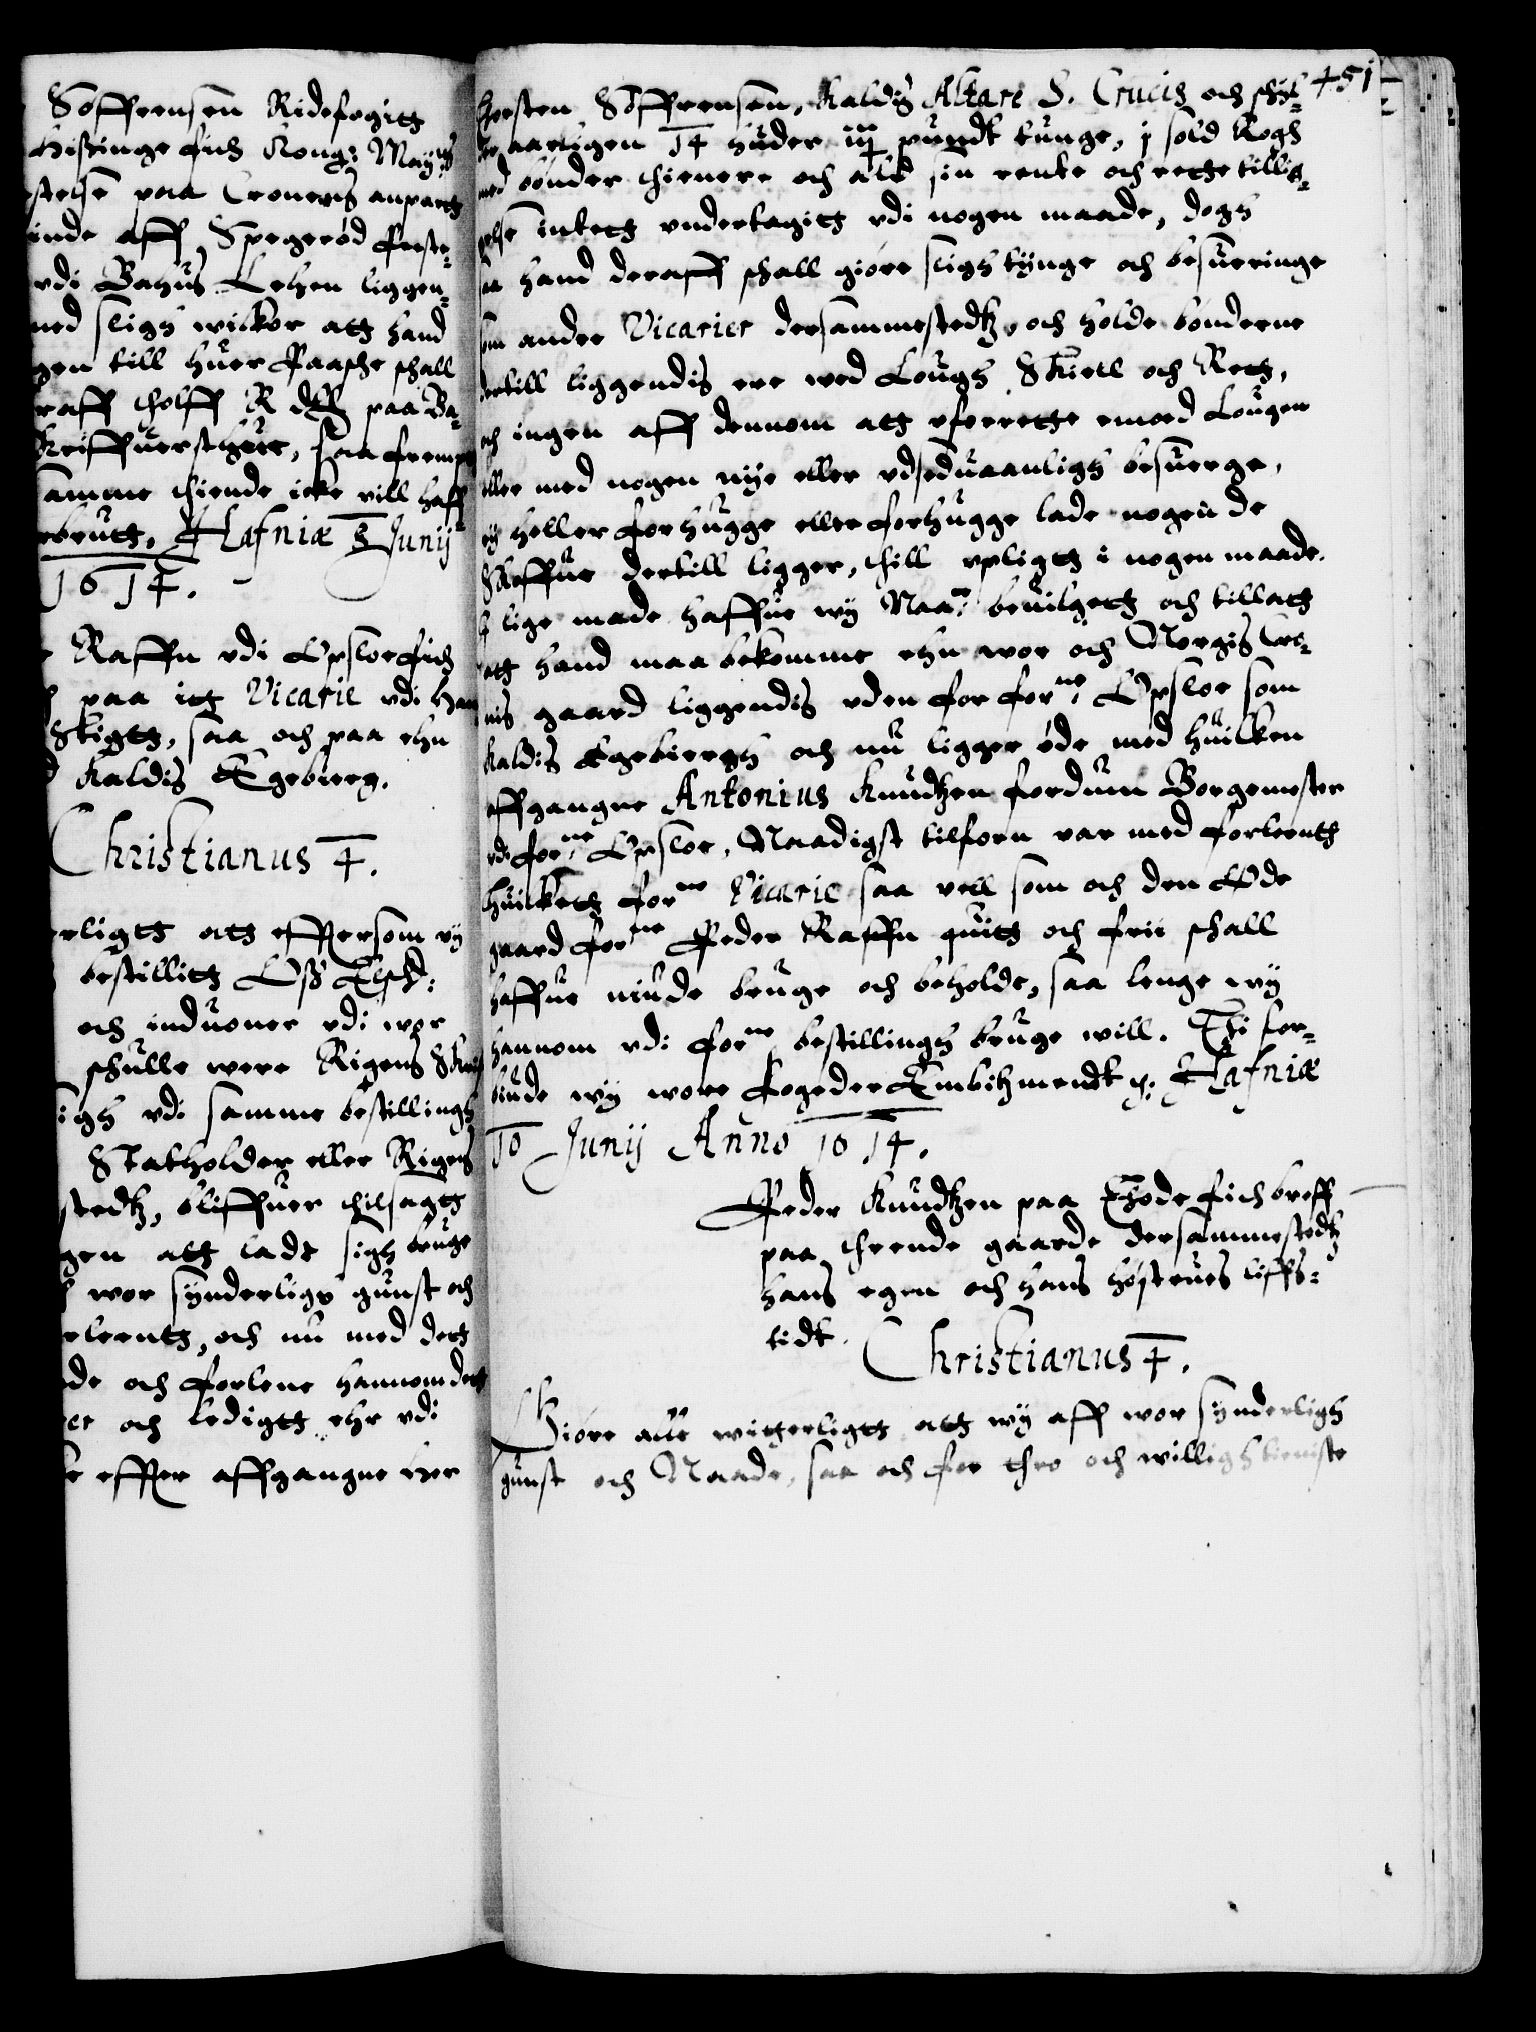 Søffrensen Ridefogitt
Hisinge fich Kong: May:tts
stelse paa Cronens anpartt
inde aff Spegerød
vdi Bahus Lehen liggen-
med sligh wilkor att hand
gen till huer Paasche schall
raff tholff R dlr paa Ba-
Skriffuerstuer, saa fremp
samme thiende icke vill haff
brutt. Hafniæ 3 Junij
1614.
Raffn vdi Opsloe fich
paa itt Vicarie vdi Ham
Stigtt, saa och paa ehn
Kaldis Egebierg.
Christianus 4.
erligtt att effthersom vy
bestillitt Oss Elsk:
och induoner vdi wor
schulle were Rigens
igh vdi samme bestillingh
Statholder eller Rigens
stedtz, bliffuer tilsagtt
gen att lade sigh bruge
wor synderlige gunst och
rleentt, och nu med dett
de och forlene hannom dett
och ledigtt ehr vdi
effter affgangne Her
451
Thorsten Søffrensen, Kaldis Altare S. Crucis och schyl-
der aarligen 14 huder iiij pundt tunge, j sold Rogh
med bønder thienere och alt sin rente och rette tillig-
gelse intett vndertagitt vdi nogen maade, dogh
saa hand deraff schall giøre sligh tynge och besueringe
som andre Vicarier dersammestedtz, och holde bønderne
dertill liggendis ere wed Lough Skiell och Rett,
och ingen aff dennom att vforrette emod Lougen
eller med nogen nye eller vdseduaanligh besuerge,
eij heller forhugge eller forhugge lade nogen de
Skoffue dertill ligger, thill vpligtt i nogen maade.
lige made haffue wy Naa: beuilgett och tillatt
att hand maa bekomme ehn wor och Norgis Cro-
nis gaard liggendis vden for for:ne Opsloe som
kaldis Egebiergh och nu ligger øde med huilken
affgangne Antonius Knudtzen fordum Borgemester
vdi for:ne Opsloe, Naadigst tilforn var med forleentt
huilckett for:ne Vicarie saa vell som och den Øde
gaard for:ne Peder Raffn quitt och frii schall
haffue niude bruge och beholde, saa lenge wy
hannom vdi for:ne bestillingh bruge will. Thi for-
biude wy wore fogeder Embitzmendt p: Hafniæ
10 Junij Anno 1614.
Peder Knudtzen paa Thode fich breff
paa thrende gaarde dersammestedtz
hans egen och hans høstrues liffs-
tidt.
Christianus 4.
Giøre alle witterligtt att wy aff wor synderligh
gunst och Naade, saa och for thro och willigh tieniste